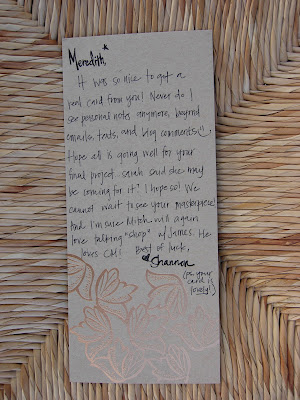 Meredith,
It was so nice to get a
real card from you! Never do I
see personal notes anymore, beyond
emails, texts, and blog comments :)
Hope all is going well for your
final project. Sarah said she may
be coming for it? I hope so! We
cannot wait to see your masterpiece!
And I'm sure Mitch will again
love talking "shop" w/ James. He
loves CM! Best of luck,
Shannon
(p.s. your
card is
lovely!)